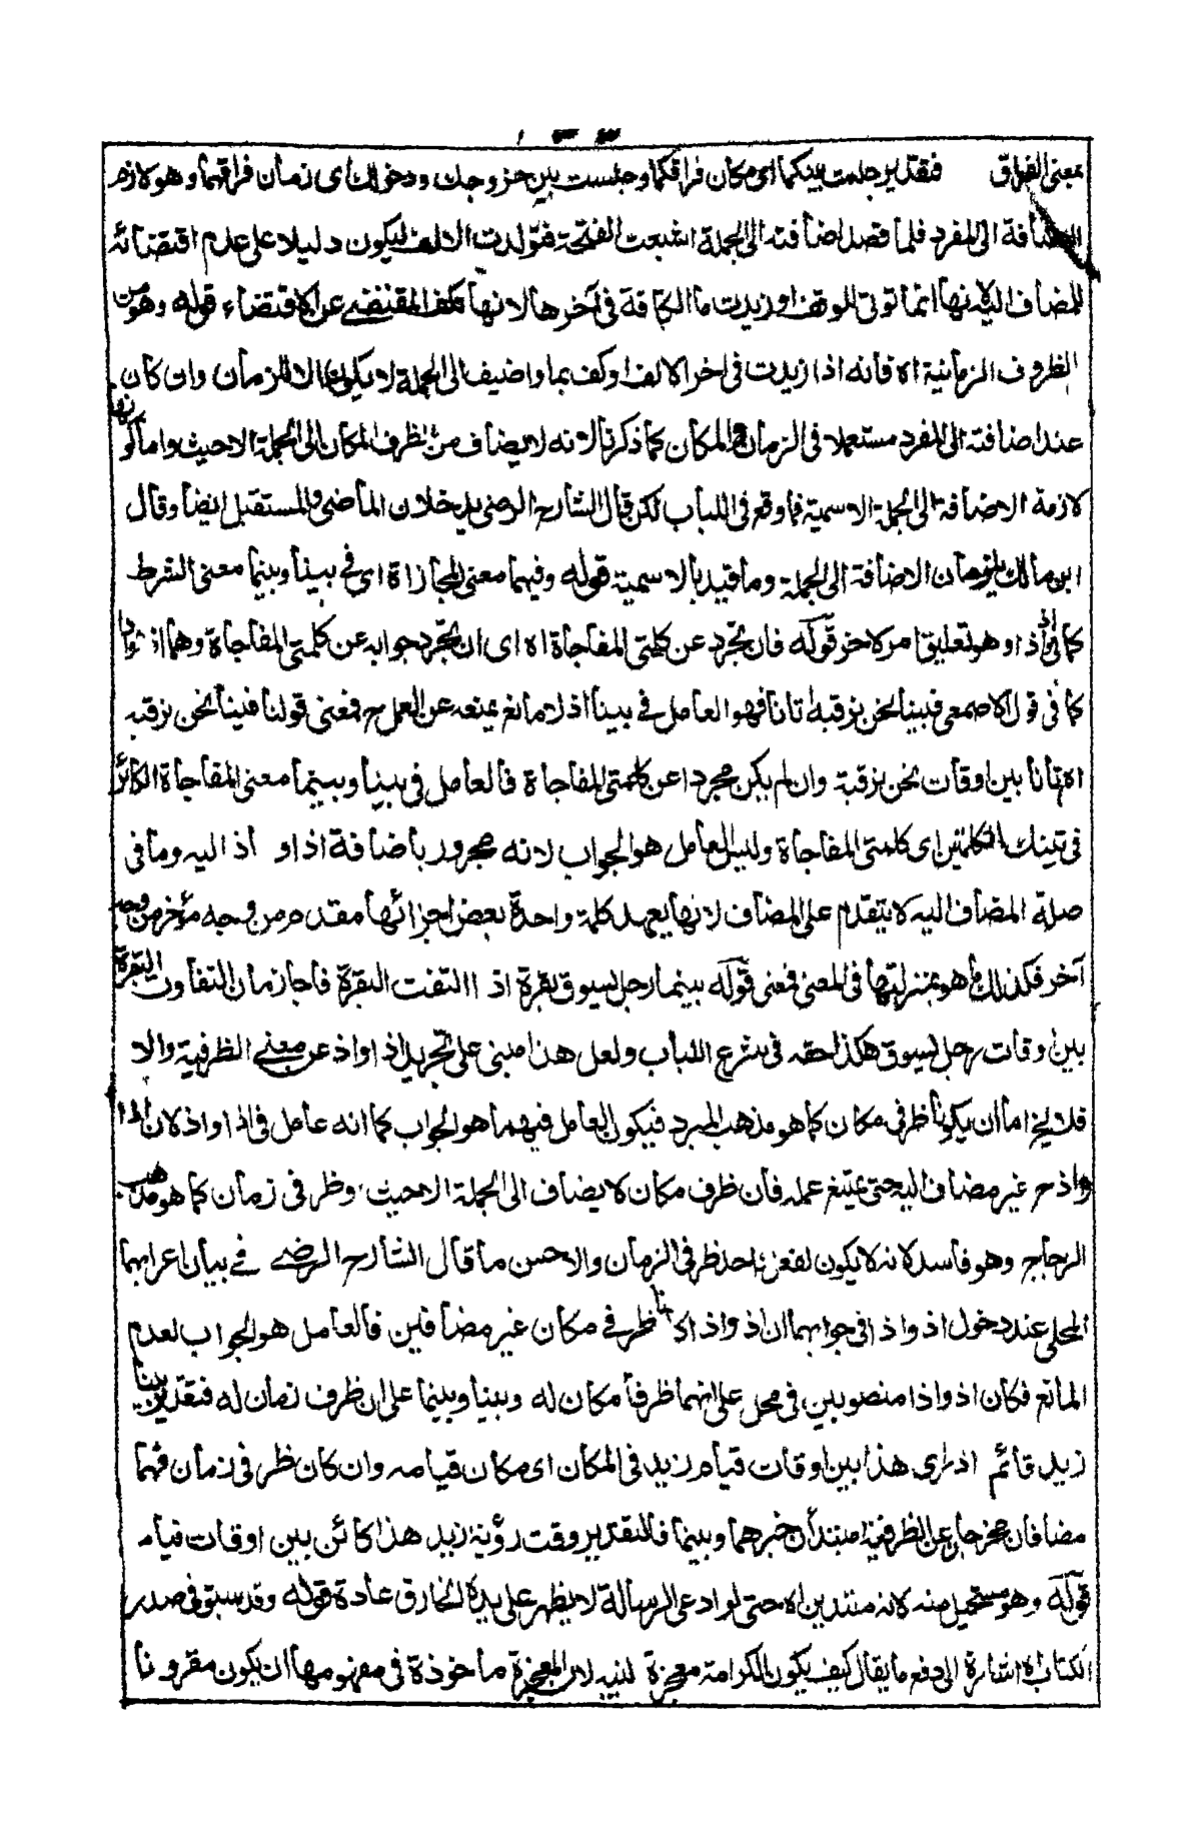 بمعنى الفراق فتقدير جلست بينكما اى مكان فراقكما وجلست بين خروجك ودخولك اى زمان فراقهما وهو لازم
الاضافة الى المفرد فلما قصد اضافته الى الجملة اشبعت الفتحة فتولدت الالف ليكون دليلا على عدم اقتضائه
للمضاف اليه لانها انما تؤتى للوقف او زيدت ما الكافة فى آخرها لانها تكف المقتضى عن الاقتضاء قوله وهو من
الظروف الزمانية اه فانه اذا زيدت فى اخر الالف او كف بما واضيف الى الجملة لا يكون الا للزمان وان كان
عند اضافته الى المفرد مستعملا فى الزمان والمكان كما ذكرنا لانه لا يضاف من ظرف المكان الى الجملة الا حيث واما كونها
لازمة الاضافة الى الجملة الاسمية فما وقع فى اللباب لكن قال الشارح الرضى يدخلان الماضى والمستقبل ايضا وقال
ابن مالك يلزمان الاضافة الى الجملة وما قيد بالاسمية قوله وفيهما معنى المجازاة اى فى بينا وبينما معنى الشرط
كما فى اذ اذا وهو تعليق امر لاخر قوله فان تجرد عن كلمتى المفاجاة اه اى ان تجرد جوابه عن كلمتى المفاجاة وهما اذ واذا
كما فى قول الاصمعى فبينا نحن نرقبه اتانا فهو العامل فى بينا اذ لا مانع يمنعه عن العمل ح فمعنى قولنا فبينا نحن نرقبه
اه اتانا بين اوقات نحن نرقبه وان لم يكن مجردا عن كلمتى المفاجاة فالعامل فى بينا وبينما معنى المفاجاة الكائن
فى تينك الكلمتين اى كلمتى المفاجاة وليس العامل هو الجواب لانه مجرور باضافة اذ او اذا اليه وما فى
صلة المضاف اليه لا يتقدم على المضاف لانها يعمد كلمة واحدة بعض اجزائها مقدم من وجه مؤخر من وجه
آخر فكذلك ما هو بمنزلتها فى المعنى فمعنى قوله بينما رجل يسوق بقرة اذ التفت البقرة فاجا زمان التفات البقرة
بين اوقات رجل يسوق هكذا حققه فى شرح اللباب ولعل هذا مبنى على تجريد اذا واذ عن معنى الظرفية والا
فلا يخ اما ان يكونا ظرفى مكان كما هو مذهب المبرد فيكون العامل فيهما هو الجواب كما انه عامل فى اذا واذ لان اذا
واذ ح غير مضاف اليه حتى يمتنع عمله فان ظرف مكان لا يضاف الى الجملة الا حيث وظرفى زمان كما هو مذهب
الزجاج وهو فاسد لانه لا يكون لفعل واحد ظرفى الزمان والاحسن ما قال الشارح الرضى فى بيان اعرابهما
المحلى عند دخول اذ واذا فى جوابهما ان اذ واذا ان كانا ظرفى مكان غير مضافين فالعامل هو الجواب لعدم
المانع فكان اذ واذا منصوبين فى محل على انهما ظرفا مكان له وبينا وبينما على ان ظرف زمان له فتقدير بينا
زيد قائم اذ ارى هذا بين اوقات قيام زيد فى المكان اى مكان قيامه وان كان ظرفى زمان فهما
مضافان مخرجان عن الظرفية مبتدأن خبرهما وبينما فالتقدير وقت رؤية زيد هذا كائن بين اوقات قيامه
قوله وهو مستحيل منه لانه متدين اه حتى لو ادعى الرسالة لا يظهر على يده الخارق عادة قوله وقد سبق فى صدر
الكتاب اه اشارة الى دفع ما يقال كيف يكون الكرامة معجزة لنبيه لان المعجزة ماخوذة فى مفهومها ان يكون مقرونا